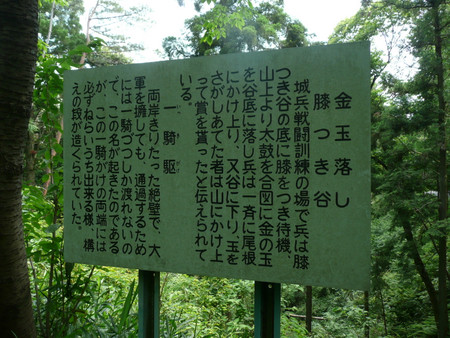 金玉落し
膝つき谷
城兵戦闘訓練の場で兵は膝
つき谷の底に膝をつき待機、
山上より太鼓を合図に金の玉
を谷底に落し兵は一斉に尾根
にかけ上り、又谷に下り、玉を
さがしあてた者は山にかけ上
って賞を貰ったと伝えられて
いる。
一騎駆
両岸きりたった絶壁で、大
軍を擁しても、通過するため
には一騎づつしか渡れないの
で、この名が起きたのである
が、この一騎がけの両端には
必ずねらいうち出来る様、構
えの段が造くられていた。